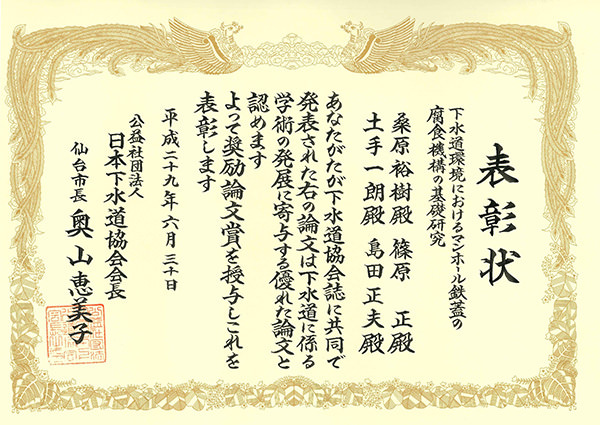 表彰状
下水道環境におけるマンホール鉄蓋の
腐食機構の基礎研究
桑原裕樹殿 篠原 正殿
土手一朗殿 島田正夫殿
あなたがたが下水道協会誌に共同で
発表された右の論文は下水道に係る
学術の発展に寄与する優れた論文と
認めます
よって奨励論文賞を授与しこれを
表彰します
平成二十九年六月三十日
公益社団法人
日本下水道協会会長
仙台市長 奥山恵美子